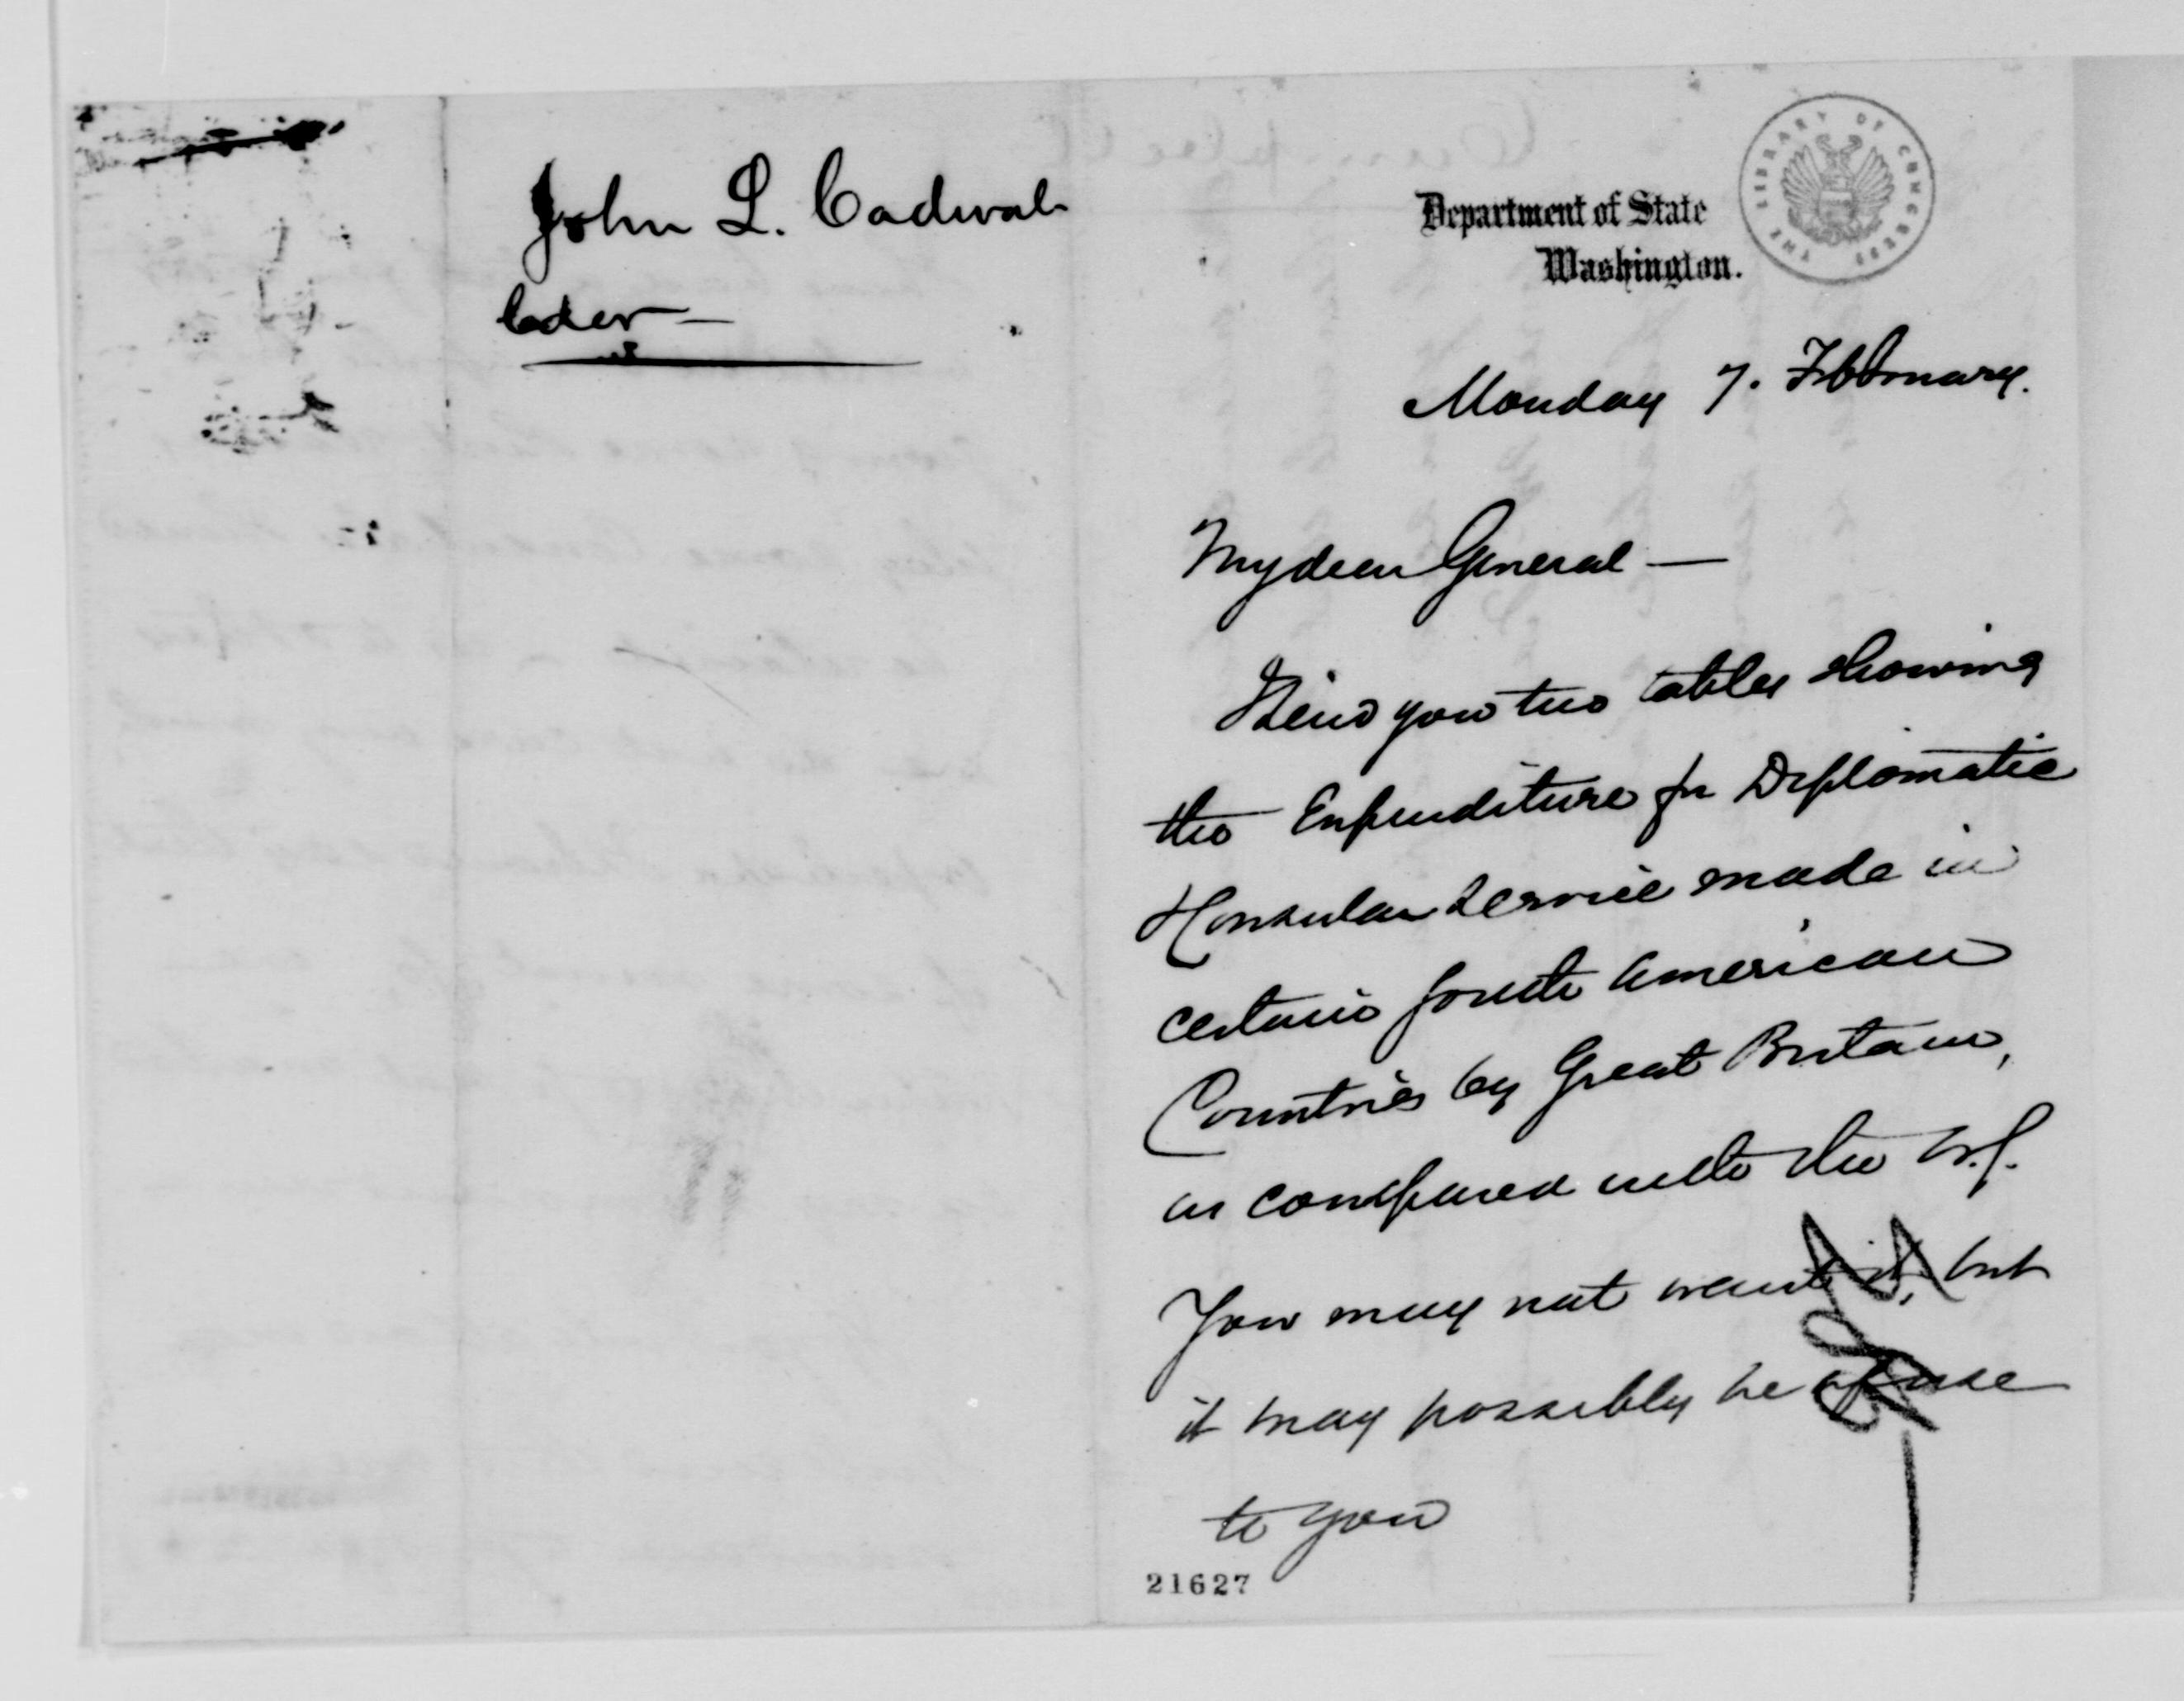 John L. Cadwal-
lader—
THE LIBRARY OF CONGRESS
Department of State
Washington.
Monday 7. February.
My dear General—
I send you two tables showing
the Expenditure for Diplomatic
& Consular Service made in
certain South American
Countries by Great Britain,
as compared with the U.S.
You may not want it, but
it may possibly be of use
to you
21627